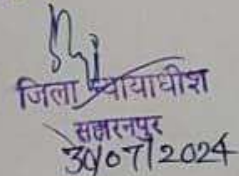 जिला न्यायाधीश
सहारनपुर
30/07/2024